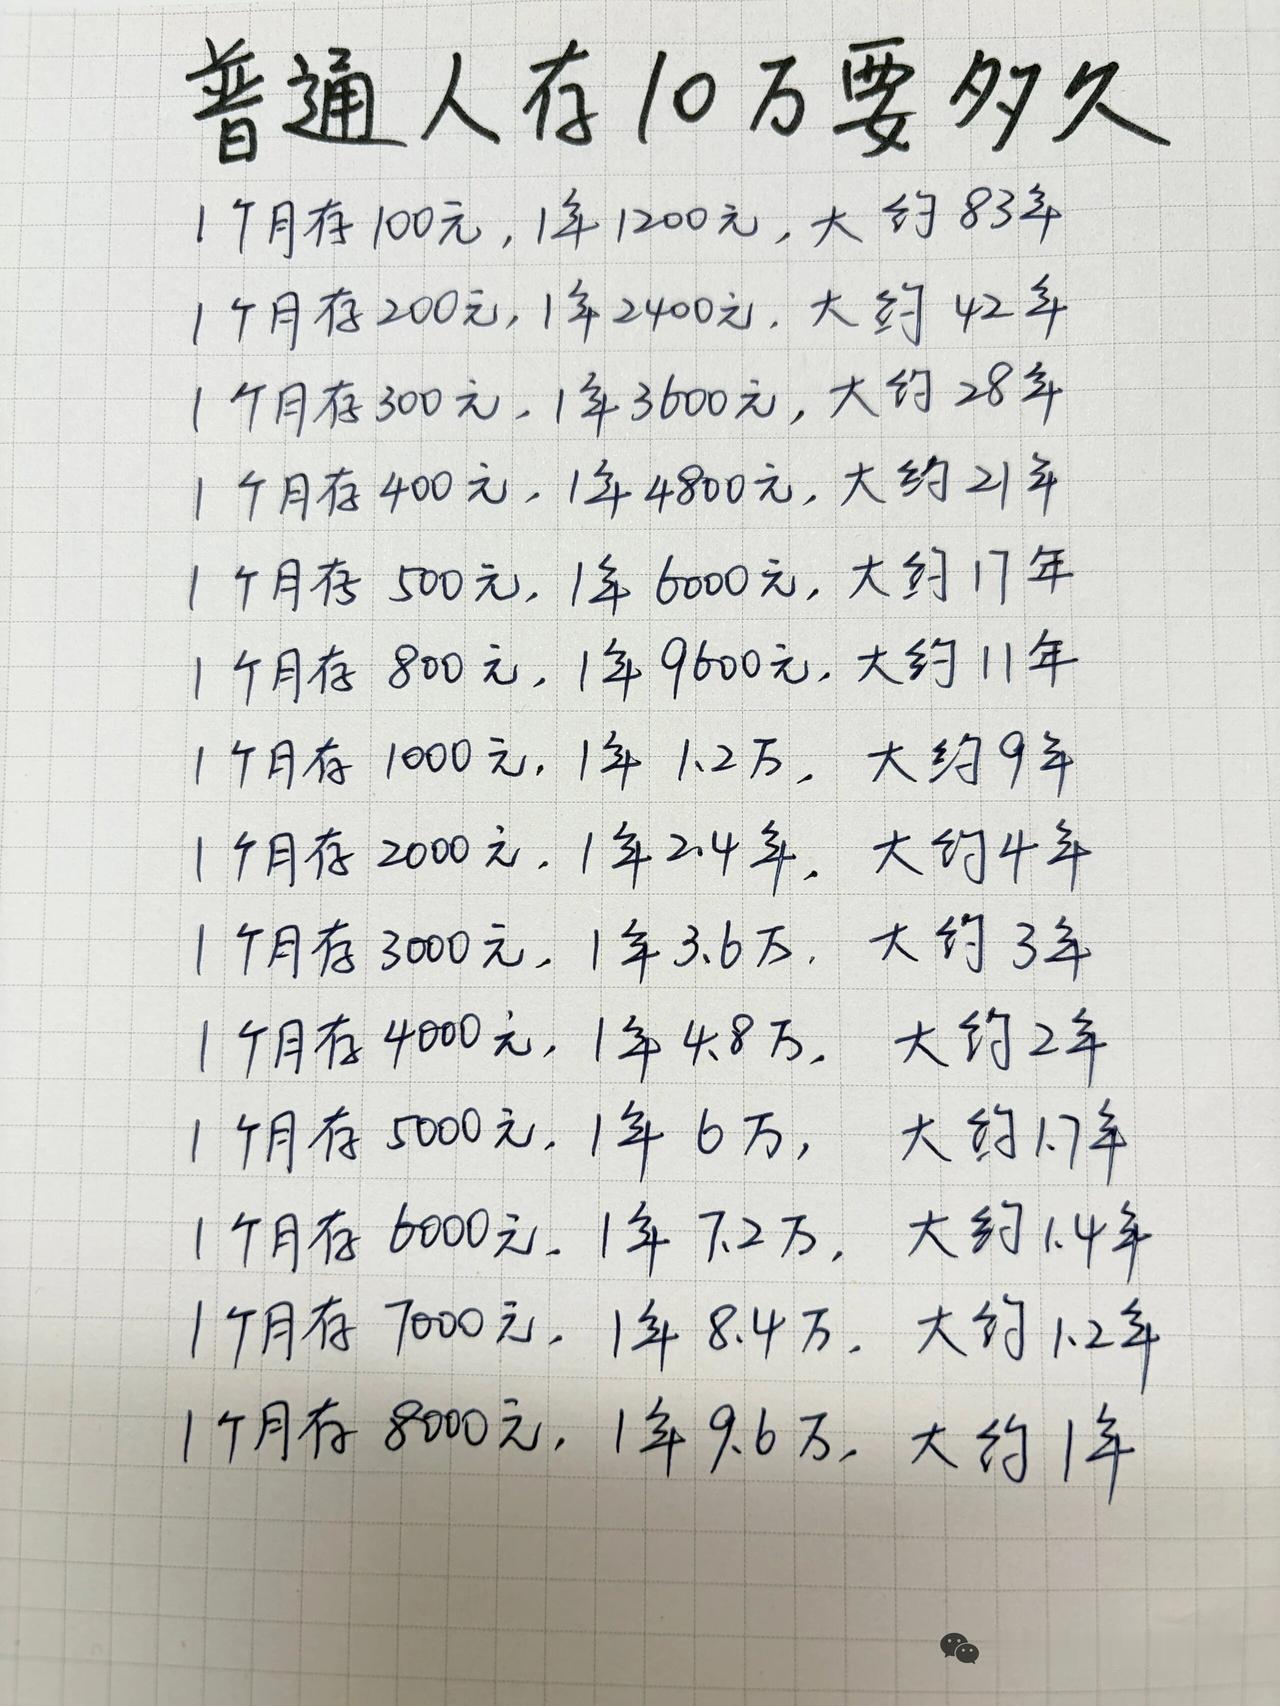 普通人存10万要多久
1个月存100元,1年1200元,大约83年
1个月存200元,1年2400元.大约42年
1个月存300元,1年3600元,大约28年
1个月存400元,1年4800元,大约21年
1个月存500元,1年6000元,大约17年
1个月存800元,1年9600元,大约11年
1个月存1000元,1年1.2万,大约9年
1个月存2000元,1年2.4年,大约4年
1个月存3000元,1年3.6万.大约3年
1个月存4000元,1年4.8万,大约2年
1个月存5000元,1年6万,大约1.7年
1个月存6000元,1年7.2万,大约1.4年
1个月存7000元,1年8.4万.大约1.2年
1个月存8000元,1年9.6万,大约1年